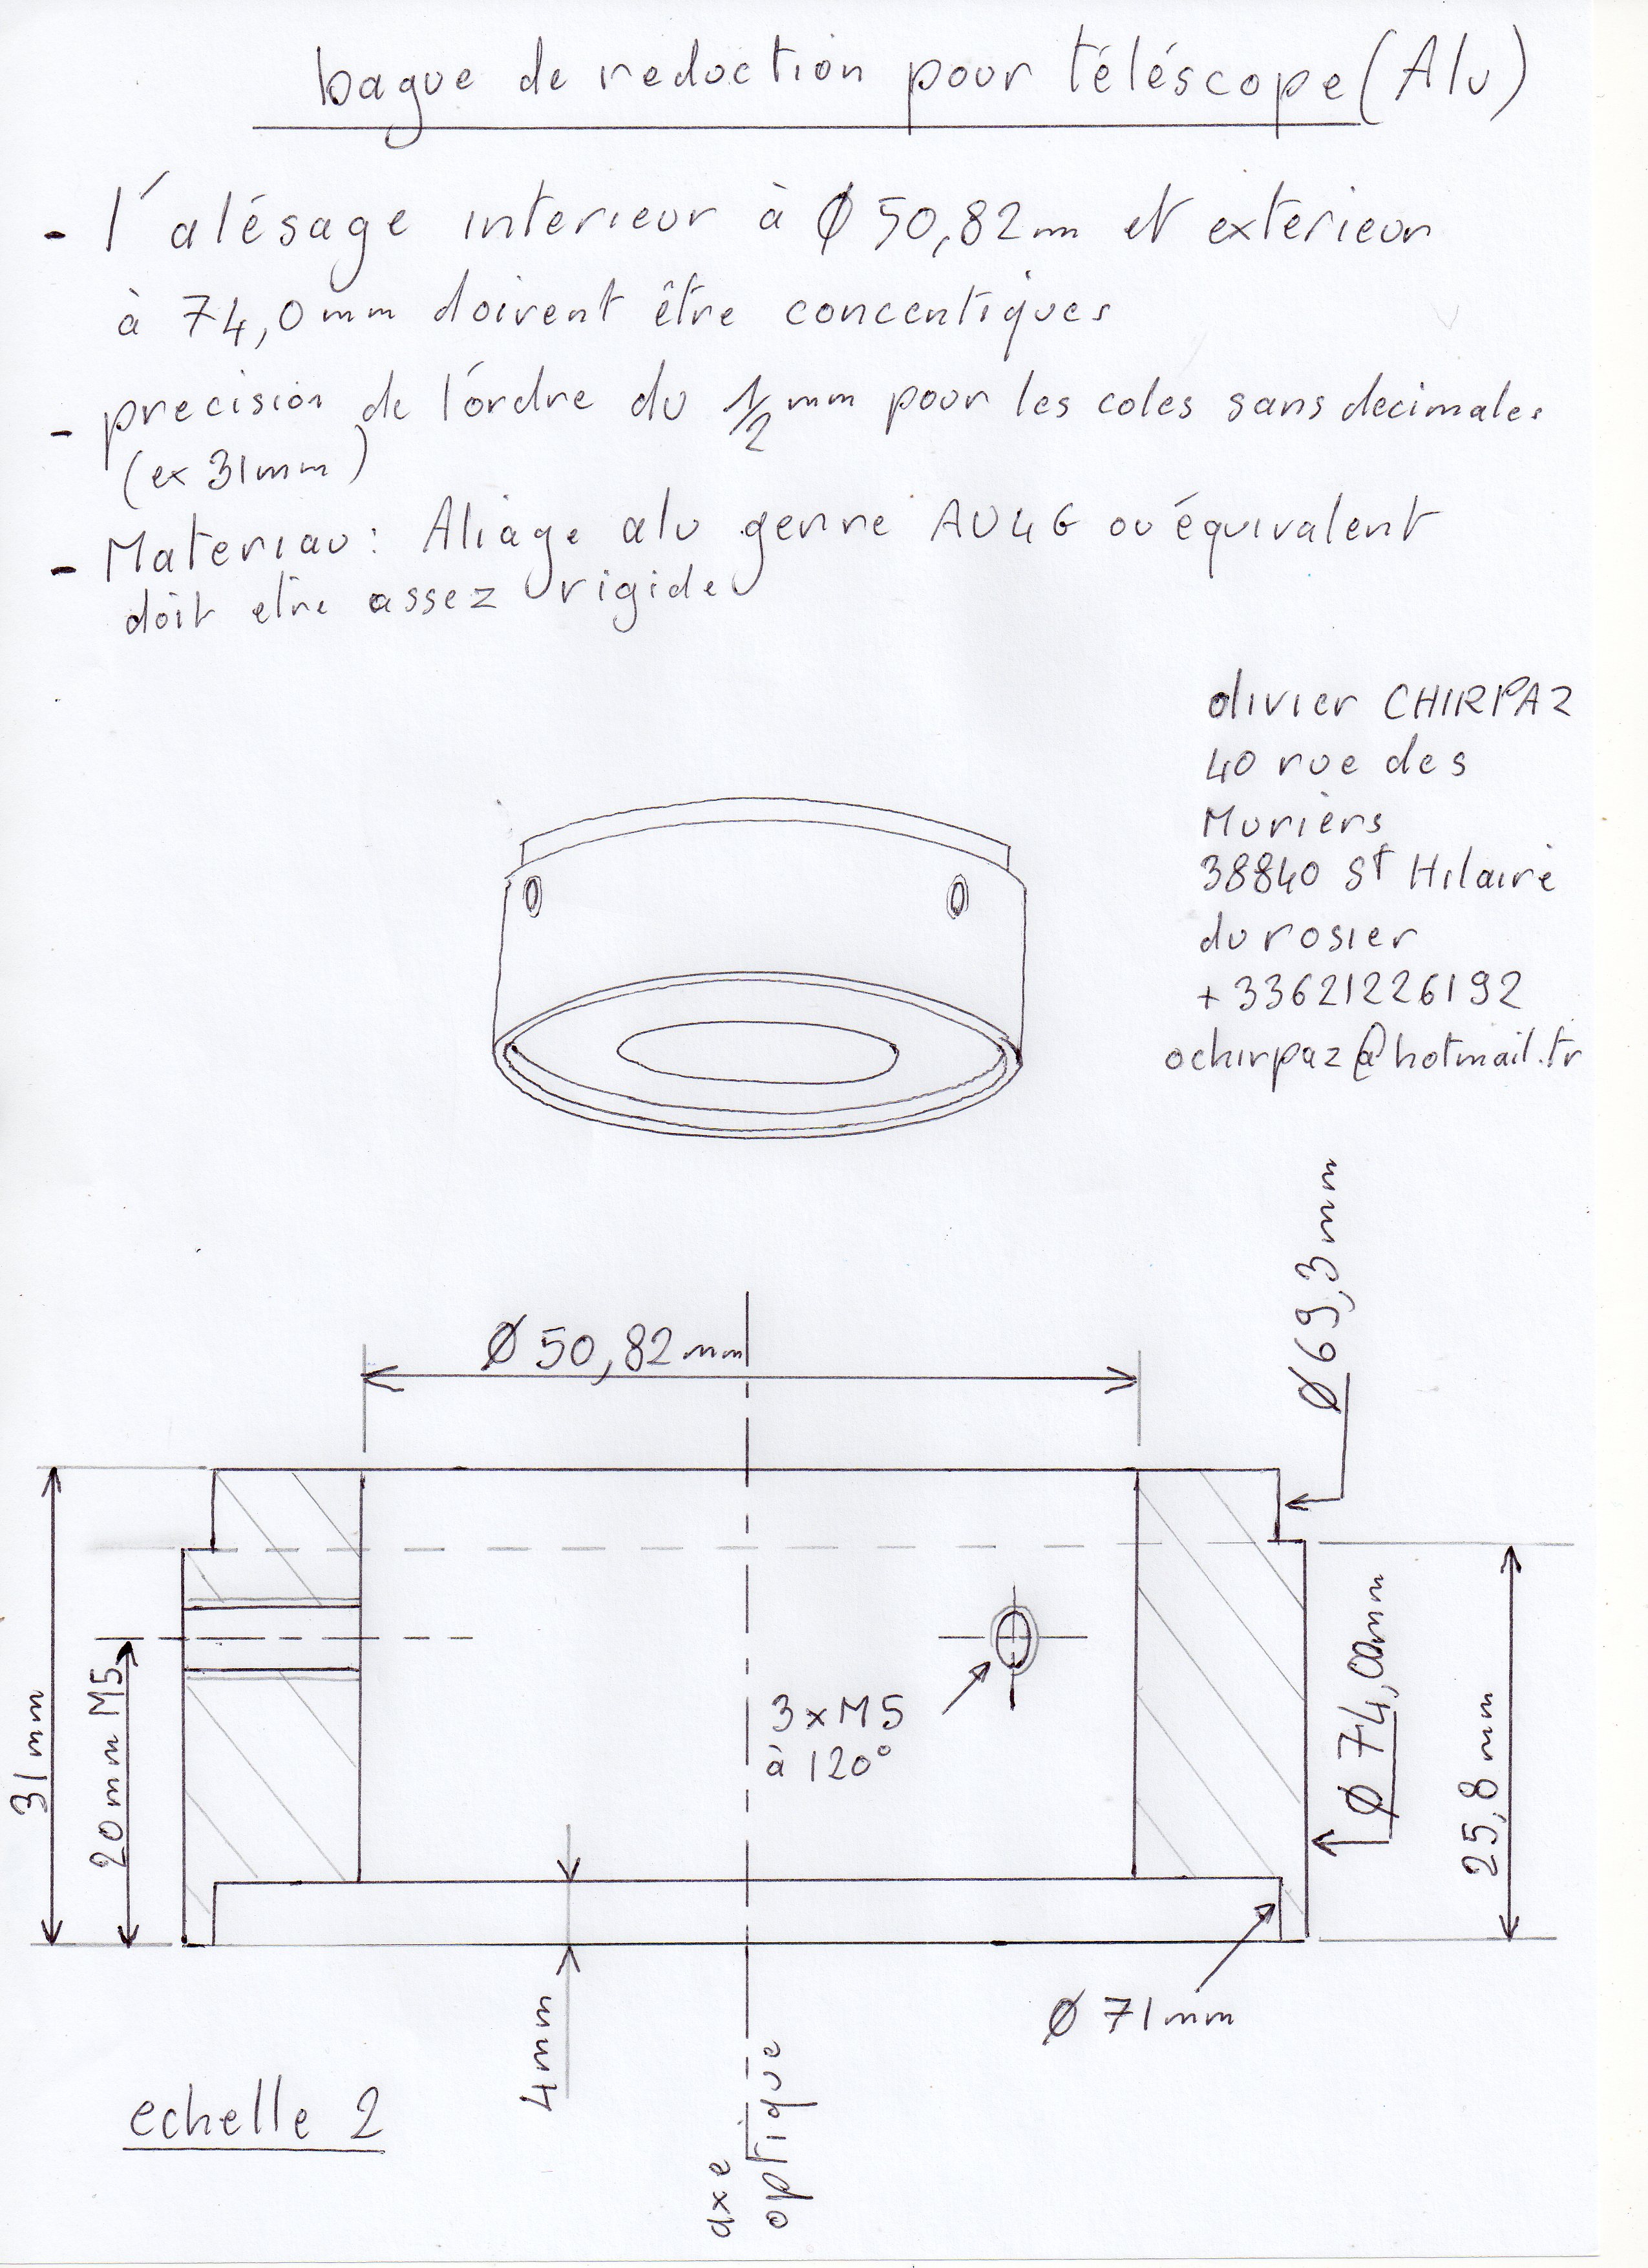 bague de reduction pour téléscope (Alu)
- l'alésage interieur à Ø 50,82mm et exterieur
à 74,0mm doivent être concentiques
- precision de l'ordre du 1/2 mm pour les cotes sans decimales
(ex 31mm)
- Materiau : Aliage alu genre AU4G ou équivalent
doit etre assez rigide
olivier CHIRPAZ
40 rue des
Muriers
38840 St Hilaire
du rosier
+33621226192
ochirpaz@hotmail.fr
Ø 69,3mm
Ø 50,82mm
31mm
20mm M5
3xM5
à 120°
Ø 74,00mm
25,8mm
4mm
Ø 71mm
echelle 2
axe
optique